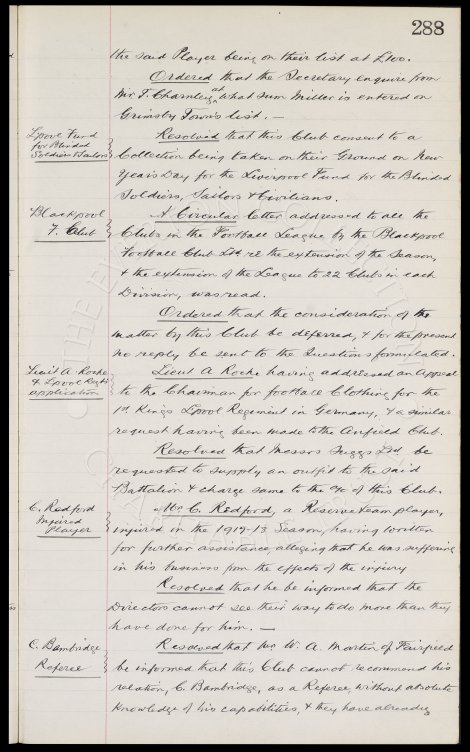 288
the said Player being on their list at £100.
Ordered that the Secretary enquire from
Mr T. Charnley at what sum Miller is entered on
Grimsby Town's list. —
Lpool Fund
for Blinded
Soldiers & Sailors
Resolved that this Club consent to a
Collection being taken on their Ground on New
Years Day for the Liverpool Fund for the Blinded
Soldiers, Sailors & Civilians.
Blackpool
F. Club
A Circular letter addressed to all the
Clubs in the Football League by the Blackpool
Football Club Ltd re the extension of the Season,
& the extension of the League to 22 Clubs in each
Division, was read.
Ordered that the consideration of the
matter by this Club be deferred, & for the present
no reply be sent to the Questions formulated.
Lieut A. Roche
& Lpool Regts
application
Lieut A Roche having addressed an Appeal
to the Chairman for football Clothing for the
1st Kings Lpool Regiment in Germany, & a similar
request having been made to the Anfield Club.
Resolved that Messrs Suggs Ltd be
requested to supply an outfit to the said
Battalion & charge same to the a/c of this Club.
C. Redford
Injured
Player
Mr C. Redford, a Reserve team player,
injured in the 1912-13 Season, having written
for further assistance, alleging that he was suffering
in his business from the effects of the injury
Resolved that he be informed that the
Directors cannot see their way to do more than they
have done for him. —
C. Bambridge
Referee
Resolved that Mr W. A. Martin of Fairfield
be informed that this Club cannot recommend his
relation, C. Bambridge, as a Referee, without absolute
knowledge of his capabilities, & they have already